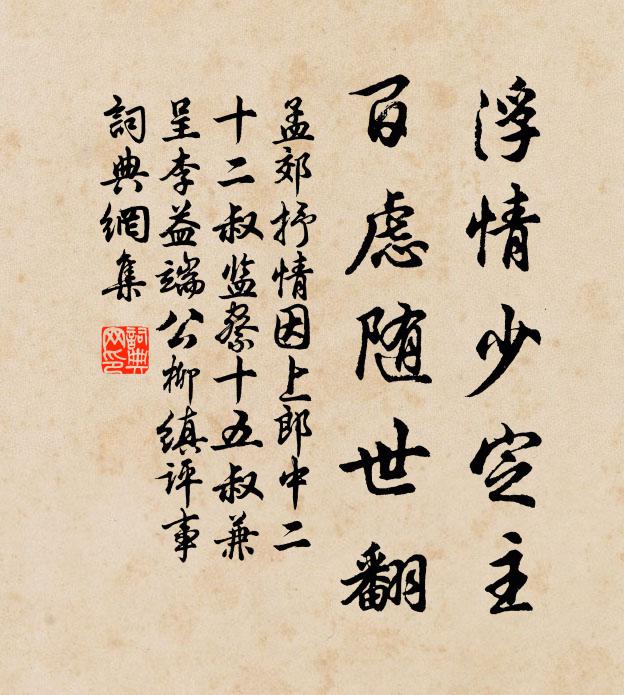 浮情少定主
百慮随世翻
孟郊抒情因上郎中二
十二叔监察十五叔兼
呈李益端公柳缜评事
詞典網集
詞典网印